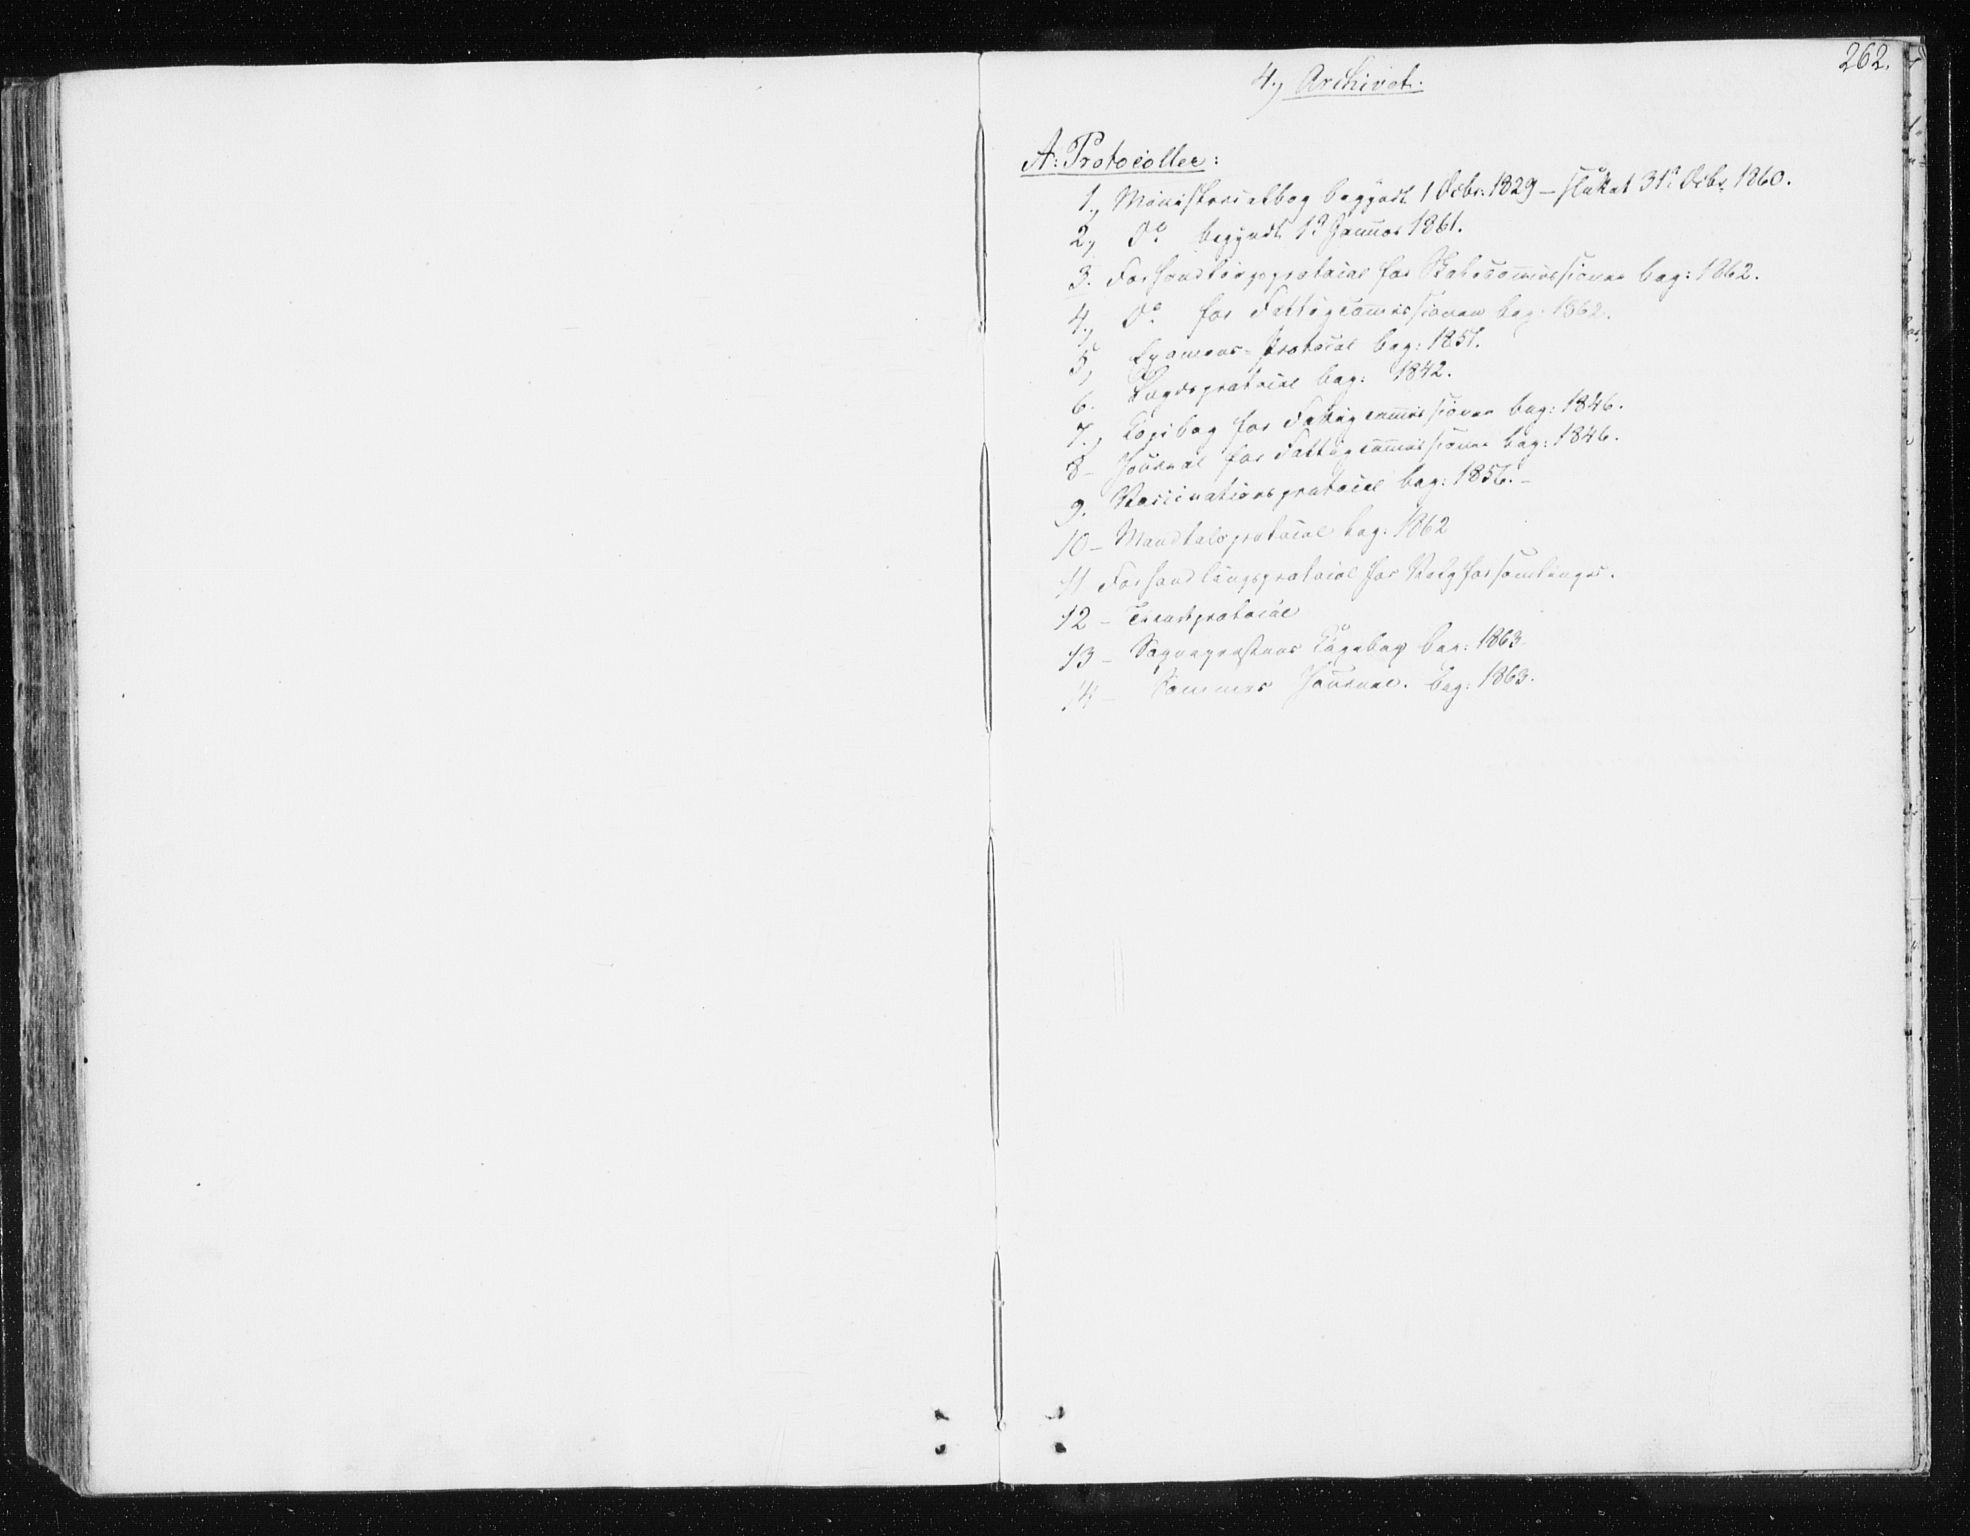 262.
4, Archivet.
A: Protocoller:
1., Ministerialbog begyndt 1 Octbr. 1829 – sluttet 31te Decbr. 1860.
2, Do begyndt 1te Januar 1861.
3. Forhandlingsprotocol for Skolecommissionen beg: 1862.
4, Do for Fattigcommissionen beg: 1862.
5, Examens-Protocol beg: 1857.
6. Lægdsprotocol beg: 1842.
7., Copibog for Fattigcommissionen beg: 1846.
8 – Journal for Fattigcommissionen beg: 1846.
9. Vaccinationsprotocol beg: 1856. –
10 – Mandtalsprotocol beg: 1862
11 Forhandlingsprotocol for Valgforsamlinger.
12 – protocol
13 – Sognepræstens Copiebog beg: 1863
14 – Sammes Journal. beg: 1863.